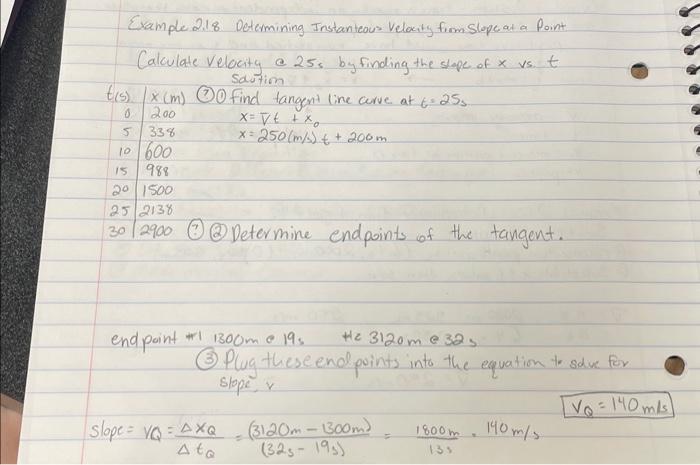 Example 2.18 Determining Instanteous Velocity from Slope at a Point
Calculate Velocity @ 25s by finding the slope of x vs. t
t(s) x(m) ? ① find tangent line curve at t=25s
0 200 x = v̅t + x₀
5 338 x = 250(m/s)t + 200m
10 600
15 988
20 1500
25 2138
30 2900 ? ② Determine endpoints of the tangent.
endpoint #1 1300m @ 19s #2 3120m @ 32s
③ Plug these endpoints into the equation to solve for
slope, v
VQ = 140 m/s
Slope = VQ = ΔXQ / ΔtQ = (3120m - 1300m) / (32s - 19s) = 1800m / 13s = 140 m/s